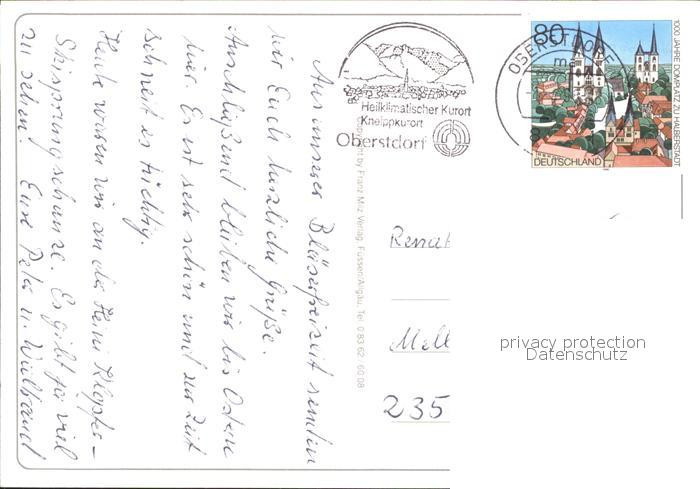 Aus unserer Bläserfreizeit senden
wir Euch herzliche Grüße.
Anschließend bleiben wir bis Ostern
hier. Es ist sehr schön und zur Zeit
schneit es tüchtig.
Heute waren wir an der Heini Klopfer-
Skisprungschanze. Es gibt so viel
zu sehen! Eure Peter u. Waltraud
Copyright by Franz Milz Verlag, Füssen/Allgäu, Tel. 0 83 62 60 08
Heilklimatischer Kurort
Kneippkurort
Oberstdorf
OBERSTDORF
80
DEUTSCHLAND
1000 JAHRE DOMPLATZ ZU HALBERSTADT
Renat
Mell
235
privacy protection
Datenschutz